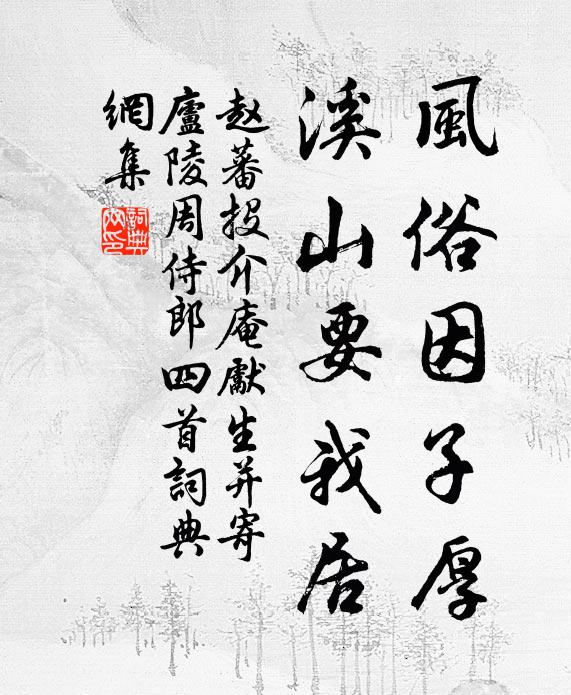 風俗因子厚
溪山要我居
赵蕃投介庵獻生并寄
廬陵周侍郎四首詞典
網集
詞典
网印